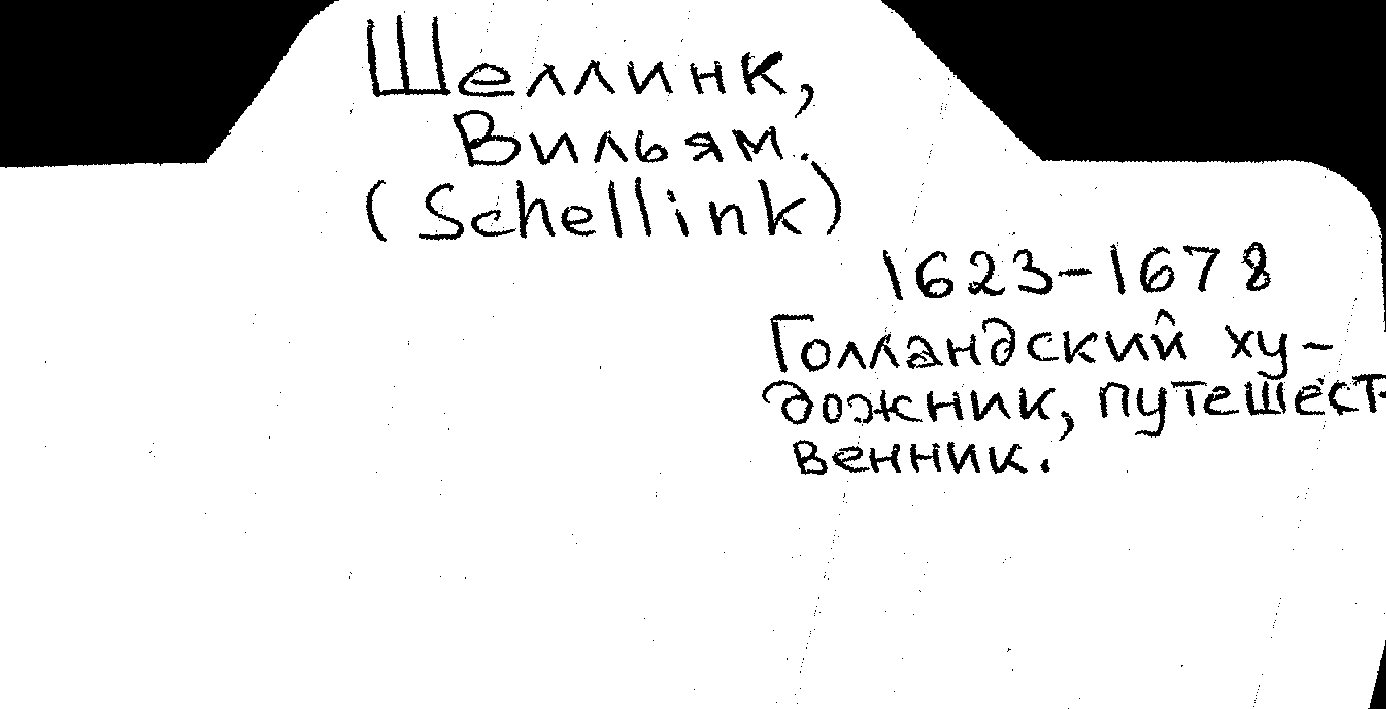 Шеллинк,
Вильям.
(Schellink)
1623-1678
Голландский ху-
дожник, путешест-
венник.